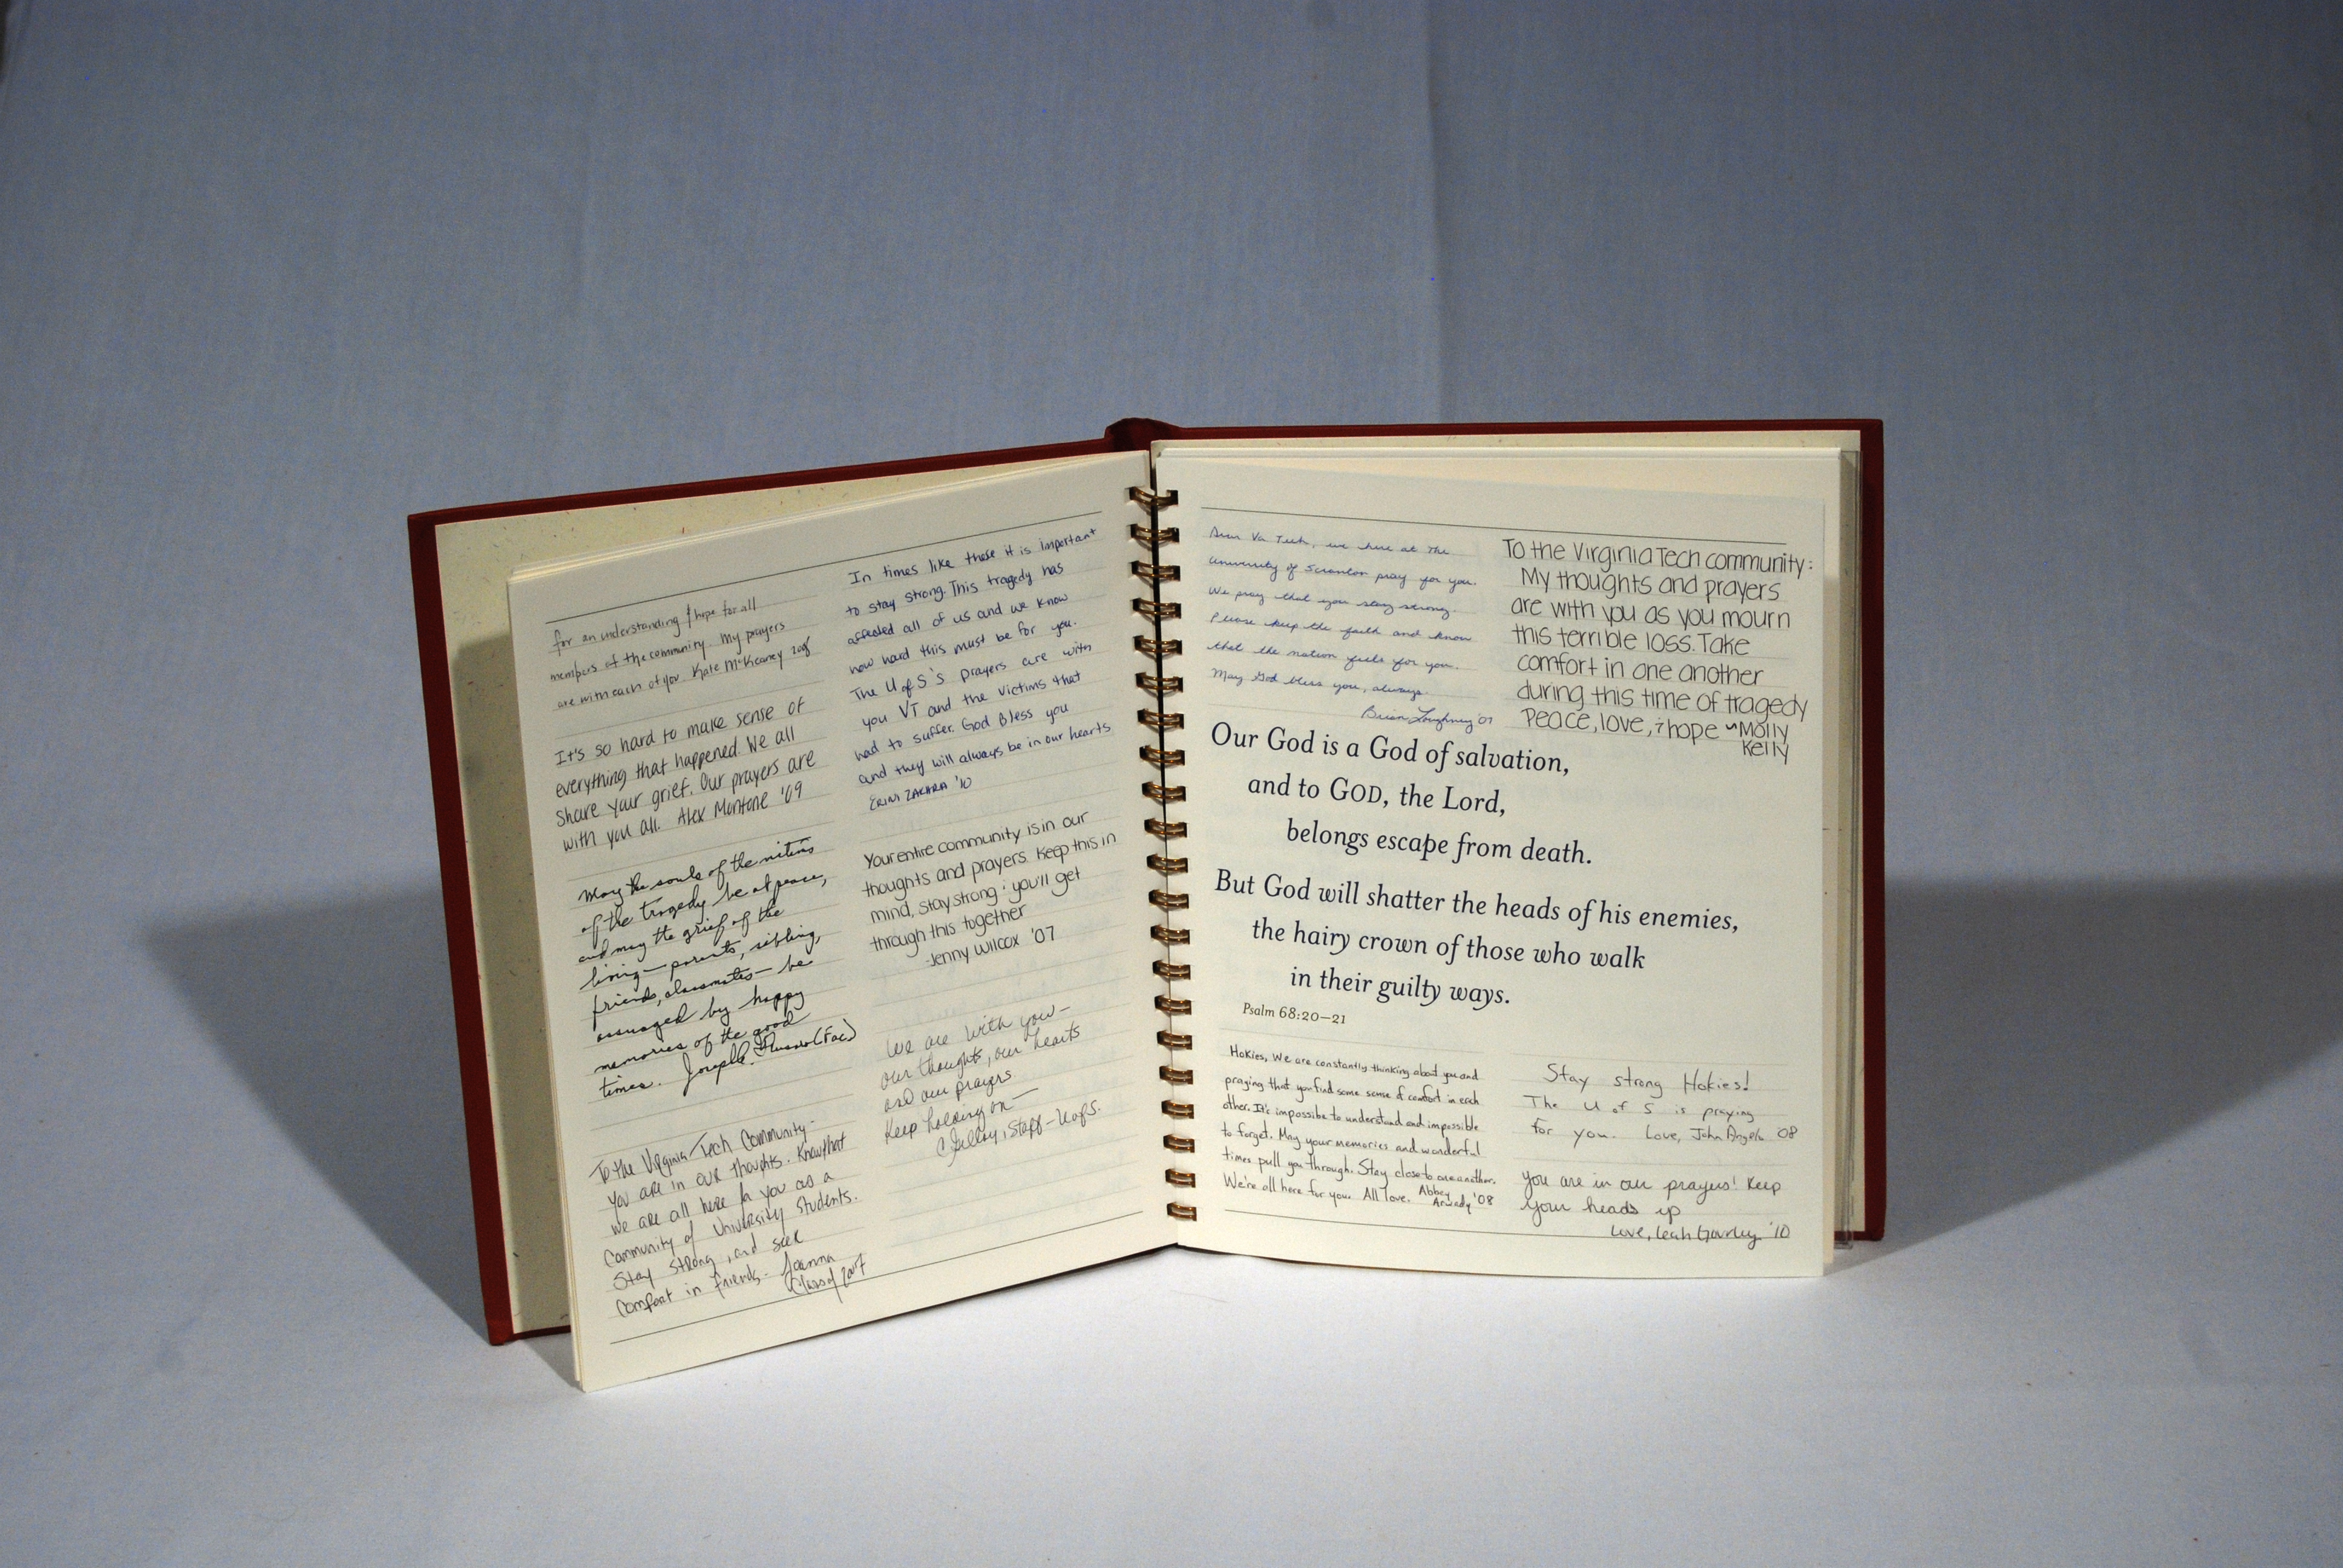 for an understanding & hope for all
members of the community. My prayers
are with each of you Kate McKeaney 2008
It's so hard to make sense of
everything that happened. We all
share your grief. Our prayers are
with you all. Alex Montone '09
May the souls of the victims
of the tragedy be at peace,
and may the grief of the
living — parents, sibling,
friends, classmates — be
assuaged by happy
memories of the good
times. Joseph (Fac)
To the Virginia Tech Community-
You are in our thoughts. Know that
we are all here for you as a
Community of University Students.
Stay strong, and seek
Comfort in friends. Joanna
Class of 2007
In times like these it is important
to stay strong. This tragedy has
affected all of us and we know
how hard this must be for you.
The U of S's prayers are with
you VT and the victims that
had to suffer. God Bless you
and they will always be in our hearts
ERIN ZAKHRA '10
Your entire community is in our
thoughts and prayers. Keep this in
mind, stay strong & you'll get
through this together
-Jenny Wilcox '07
We are with you—
our thoughts, our hearts
and our prayers
Keep holding on—
Staff - UofS.
Dear Va Tech, we here at The
University of Scranton pray for you.
We pray that you stay strong.
Please keep the faith and know
that the nation feels for you.
May God bless you, always.
Brian Loughney '07
To the Virginia Tech community:
My thoughts and prayers
are with you as you mourn
this terrible loss. Take
comfort in one another
during this time of tragedy
Peace, love, & hope ~Molly
Kelly
Our God is a God of salvation,
and to GOD, the Lord,
belongs escape from death.
But God will shatter the heads of his enemies,
the hairy crown of those who walk
in their guilty ways.
Psalm 68:20–21
Hokies, We are constantly thinking about you and
praying that you find some sense of comfort in each
other. It's impossible to understand and impossible
to forget. May your memories and wonderful
times pull you through. Stay close to one another.
We're all here for you. All love. Abbey
Arwady '08
Stay strong Hokies!
The U of S is praying
for you. Love, John Angelo '08
You are in our prayers! Keep
your heads up
Love, Leah Gourley '10